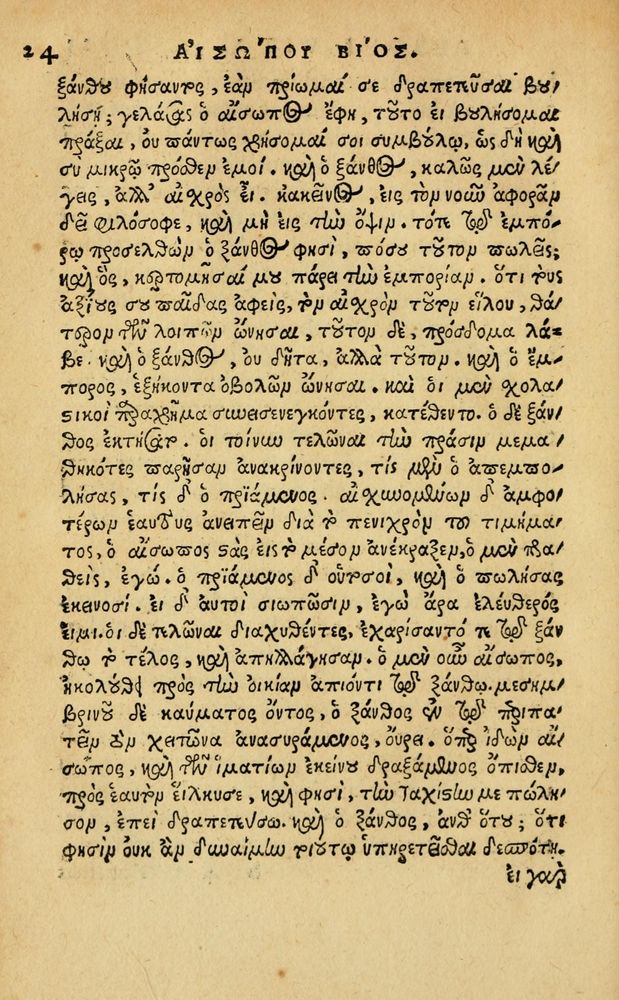 24 ΑἸΣΏΠΟΥ ΒΊΟΣ.
ξάνθου φήσαντος, ἐὰν πρίωμαί σε δραπετεῦσαι βου/
λήσῃ; γελάσας ὁ αἴσωπος ἔφη, τοῦτο εἰ βουλήσομαι
πρᾶξαι, οὐ πάντως χρήσομαί σοι συμβούλῳ, ὡς δὴ καὶ
σὺ μικρῷ πρόσθεν ἐμοί. καὶ ὁ ξάνθος, καλῶς μὲν λέ/
γεις, ἀλλ' αἰσχρὸς εἶ. κἀκεῖνος, εἰς τὸν νοῦν ἀφορᾶν
δεῖ φιλόσοφε, καὶ μὴ εἰς τὴν ὄψιν. τότε τῷ ἐμπό/
ρῳ προσελθὼν ὁ ξάνθος φησὶ, πόσου τοῦτον πωλεῖς;
καὶ ὃς, κερτομῆσαί μου πάρει τὴν ἐμπορίαν. ὅτι τοὺς
ἀξίους σου παῖδας ἀφεὶς, τὸν αἰσχρὸν τοῦτον εἵλου, θά/
τερον τῶν λοιπῶν ὤνησαι, τοῦτον δὲ, πρόσδομα λά=
βε. καὶ ὁ ξάνθος, οὐ δῆτα, ἀλλὰ τοῦτον. καὶ ὁ ἔμ/
πορος, ἑξήκοντα ὀβολῶν ὤνησαι. καὶ οἱ μὲν σχολα/
στικοὶ παραχρῆμα συνεισενεγκόντες, κατέθεντο. ὁ δὲ ξάν/
θος ἐκτήσατο. οἱ τοίνυν τελῶναι τὴν πράσιν μεμα/
θηκότες παρῆσαν ἀνακρίνοντες, τίς μὲν ὁ ἀπεμπο/
λήσας, τίς δ' ὁ πριάμενος. αἰσχυνομένων δ' ἀμφο/
τέρων ἑαυτοὺς ἀνειπεῖν διὰ τὸ πενιχρὸν τοῦ τιμήμα/
τος, ὁ αἴσωπος στὰς εἰς τὸ μέσον ἀνέκραξεν, ὁ μὲν πρα/
θεὶς, ἐγώ. ὁ πριάμενος δ' οὑτοσὶ, καὶ ὁ πωλήσας
ἐκεινοσί. εἰ δ' αὐτοὶ σιωπῶσιν, ἐγὼ ἄρα ἐλεύθερός
εἰμι. οἱ δὲ τελῶναι διαχυθέντες, ἐχαρίσαντό τε τῷ ξάν
θῳ τὸ τέλος, καὶ ἀπηλλάγησαν. ὁ μὲν οὖν αἴσωπος,
ἠκολούθει πρὸς τὴν οἰκίαν ἀπιόντι τῷ ξάνθῳ. μεσημ/
βρινοῦ δὲ καύματος ὄντος, ὁ ξάνθος ἐν τῷ περιπα/
τεῖν τὸν χιτῶνα ἀνασυράμενος, οὔρει. ὅπερ ἰδὼν αἴ/
σωπος, καὶ τῶν ἱματίων ἐκείνου δραξάμενος ὄπισθεν,
πρὸς ἑαυτὸν εἵλκυσε, καὶ φησὶ, τὴν ταχίστην με πώλη/
σον, ἐπεὶ δραπετεύσω. καὶ ὁ ξάνθος, ἀνθ' ὅτου; ὅτι
φησὶν οὐκ ἂν δυναίμην τοιούτῳ ὑπηρετεῖσθαι δεσπότῃ.
εἰ γὰρ